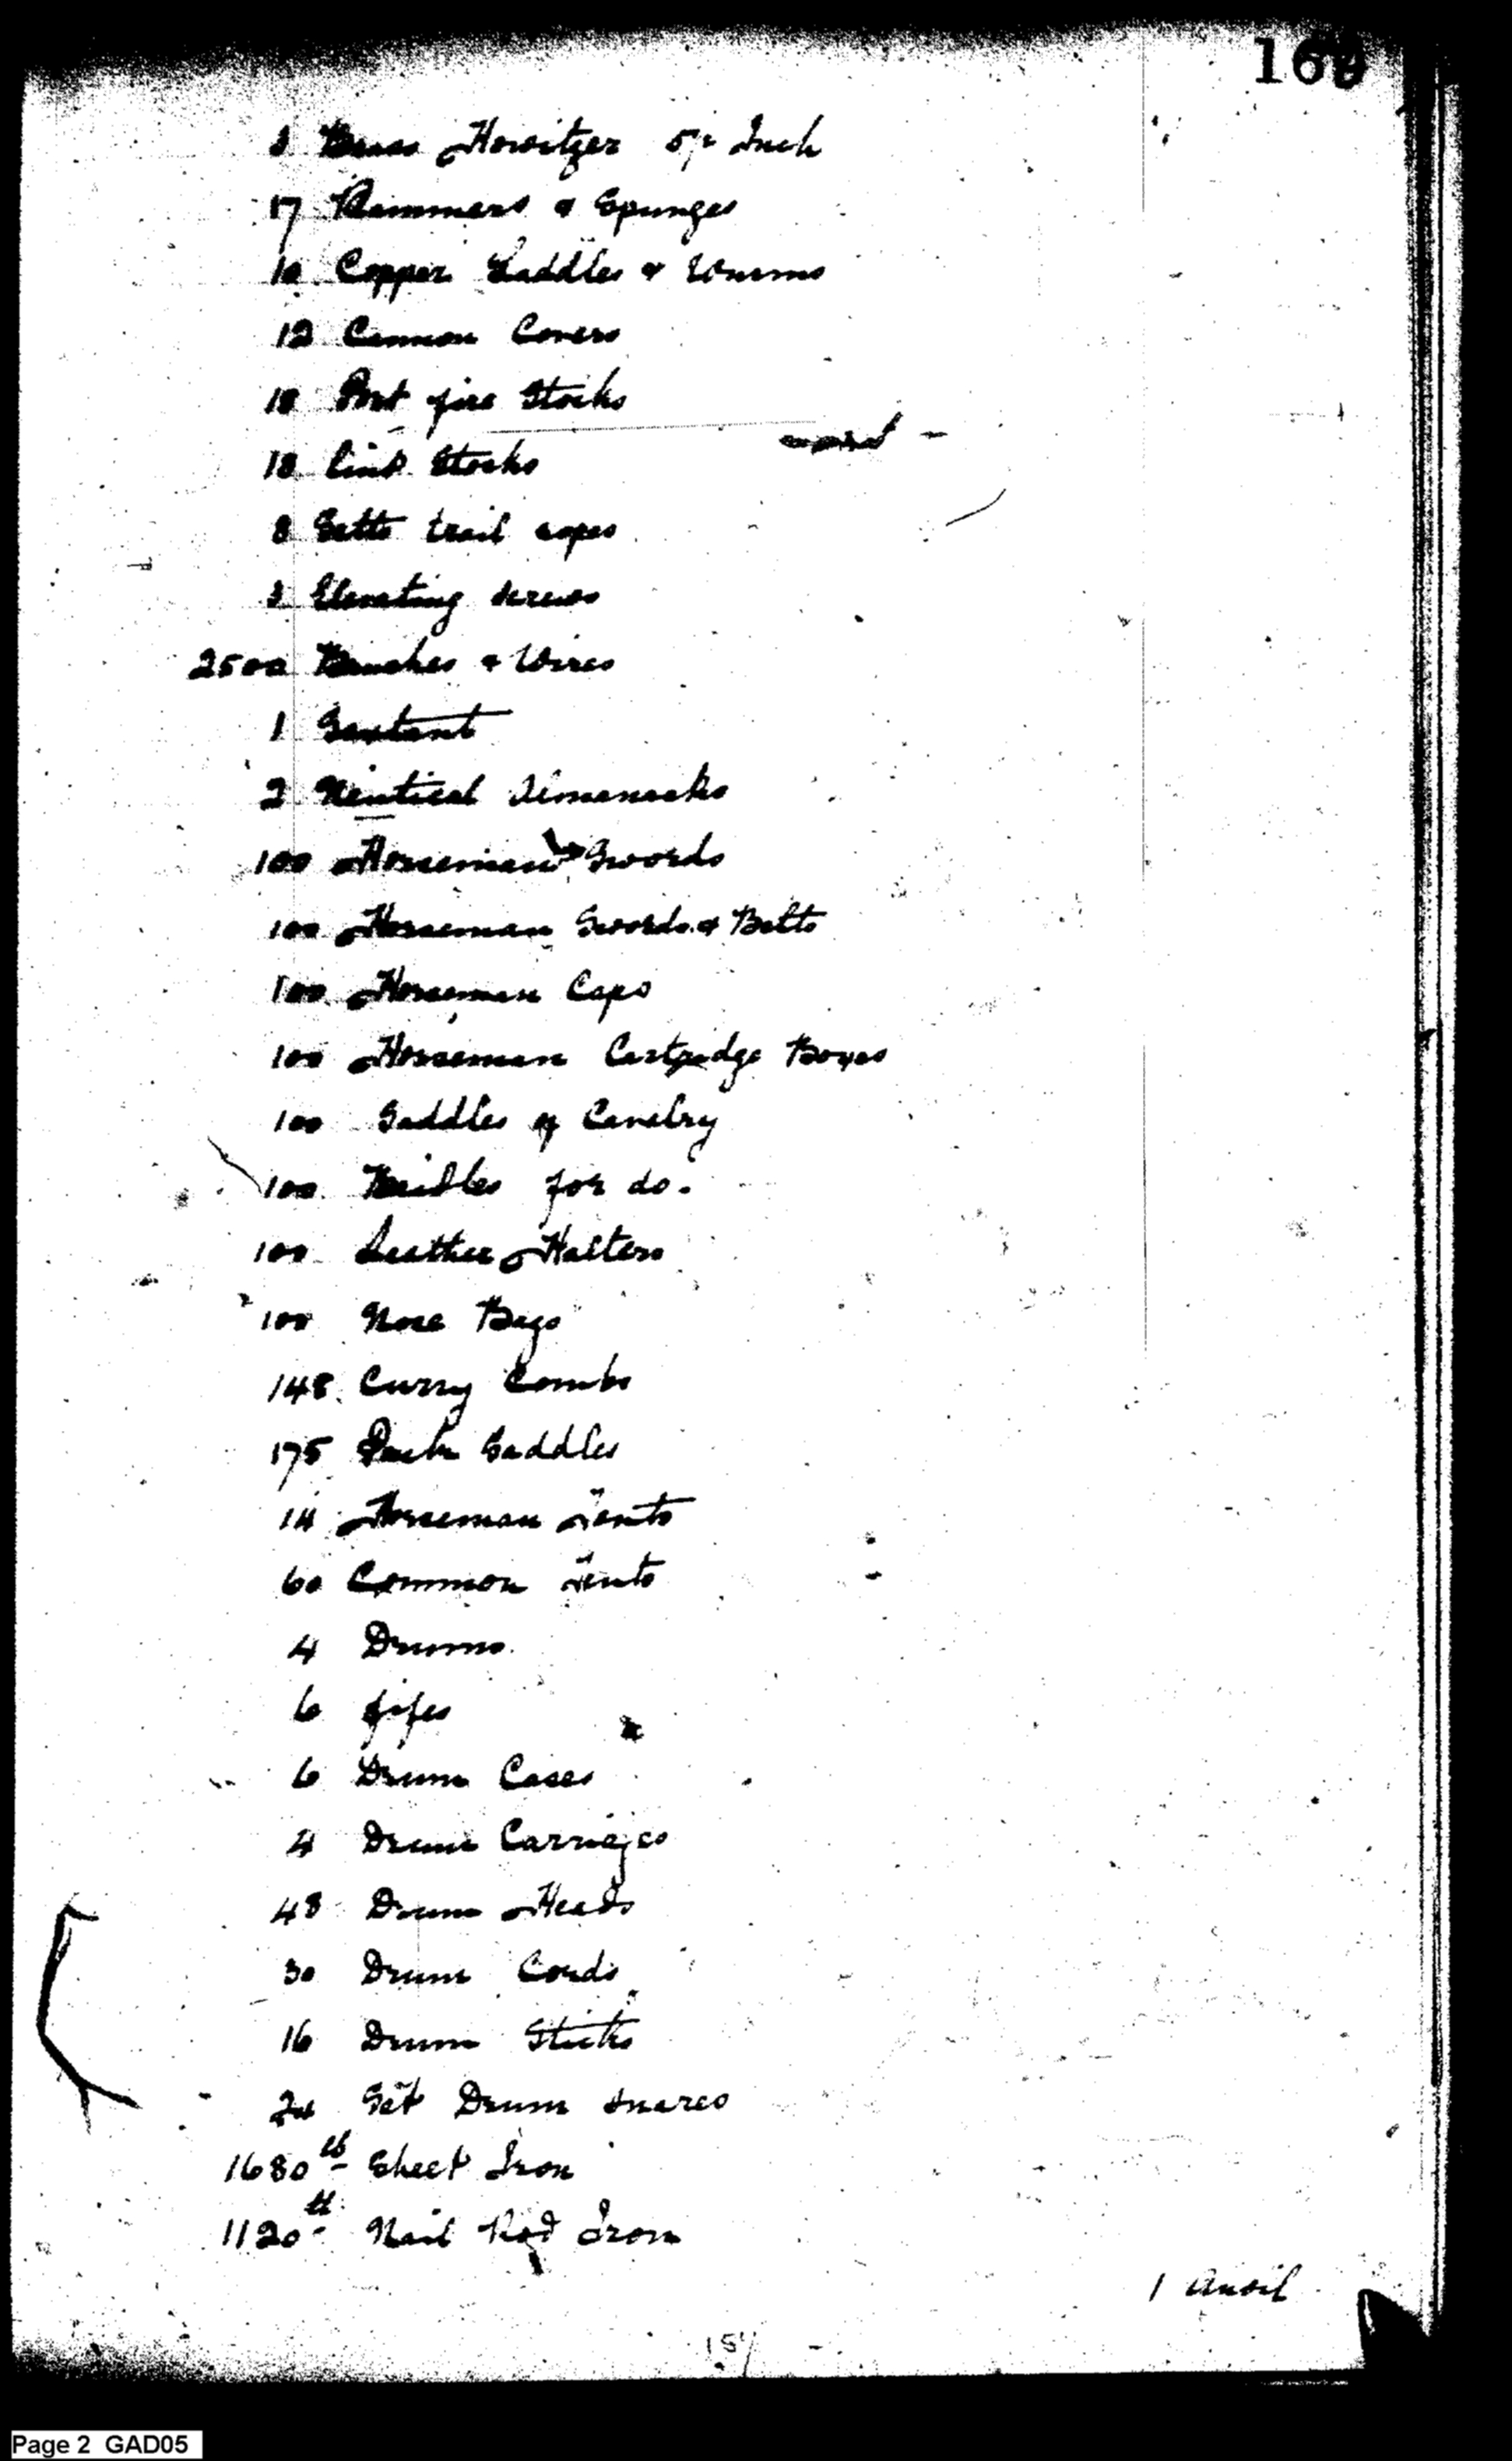 169
3 Brass Howitzer 5½ Inch
17 Rammers & Spunges
10 Copper Laddles & Wurms
12 Cannon Covers
18 Port fire Stocks
18 Lint Stocks
8 Setts trail ropes
3 Elevating screws
2500 Brushes & Wires
1 Sextant
2 Nautical Almanacks
100 Horseman Swords
100 Horseman Swords & Belts
100 Horseman Caps
100 Horseman Cartridge Boxes
100 Saddles of Cavelry
100 Bridles for do.
100 Leather Halters
100 Nose Bags
148 Curry Combs
175 Pack Saddles
14 Horseman Tents
60 Common Tents
4 Drums
6 fifes
6 Drum Cases
4 Drum Carriages
48 Drum Heads
30 Drum Cords
16 Drum Sticks
24 Set Drum snares
1680 lb Sheet Iron
1120 lb Nail Rod Iron
1 Anvil
157
Page 2 GAD05